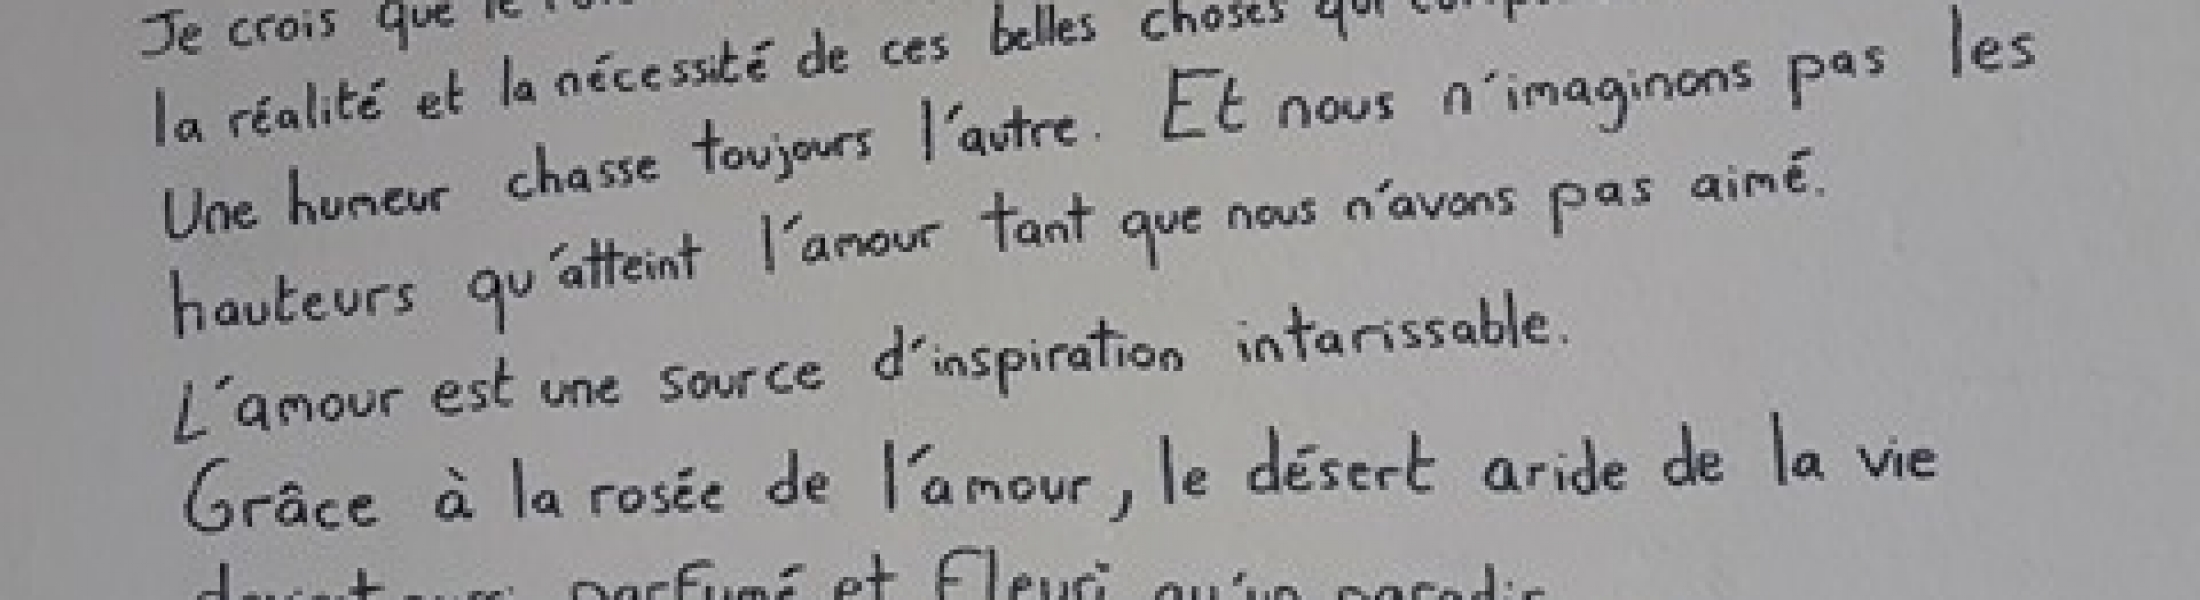 Je crois que le
la réalité et la nécessité de ces belles choses qui
Une humeur chasse toujours l'autre. Et nous n'imaginons pas les
hauteurs qu'atteint l'amour tant que nous n'avons pas aimé.
L'amour est une source d'inspiration intarissable.
Grâce à la rosée de l'amour, le désert aride de la vie
devient aussi parfumé et fleuri qu'un paradis